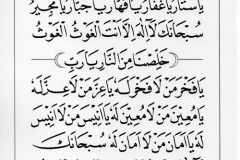 يَاسَتَّارُ يَاغَفَّارُ يَاقَهَّارُ يَاجَبَّارُ يَامُجِيرُ
سُبْحَانَكَ لَا اِلٰهَ اِلَّا اَنْتَ الْغَوْثُ الْغَوْثُ
خَلِّصْنَا مِنَ النَّارِ يَارَبِّ
يَافَخْرَ مَنْ لَا فَخْرَ لَهُ يَاعِزَّ مَنْ لَا عِزَّ لَهُ
يَامُعِينَ مَنْ لَا مُعِينَ لَهُ يَا اَنِيسَ مَنْ لَا اَنِيسَ
لَهُ يَا اَمَانَ مَنْ لَا اَمَانَ لَهُ سُبْحَانَكَ